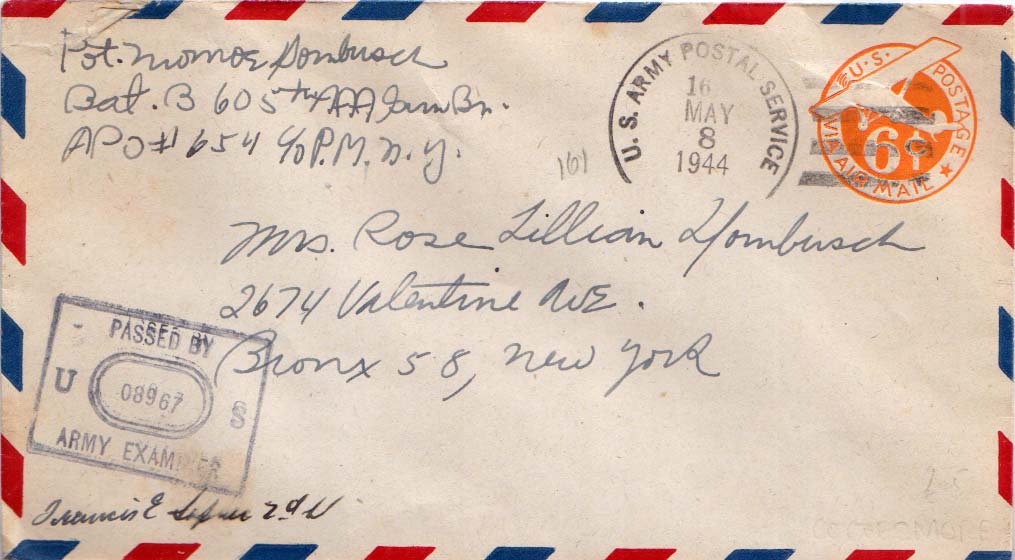 Pvt. Monroe Dornbusch
Bat. B 605th AAA Gun Bn.
APO # 654 c/o P.M. N.Y.
U. S. ARMY POSTAL SERVICE
16
MAY
8
1944
U.S. POSTAGE
6¢
VIA AIR MAIL
161
Mrs. Rose Lillian Dornbusch
2674 Valentine Ave.
Bronx 58, New York
PASSED BY
U 08967 S
ARMY EXAMINER
Francis E 2nd Lt